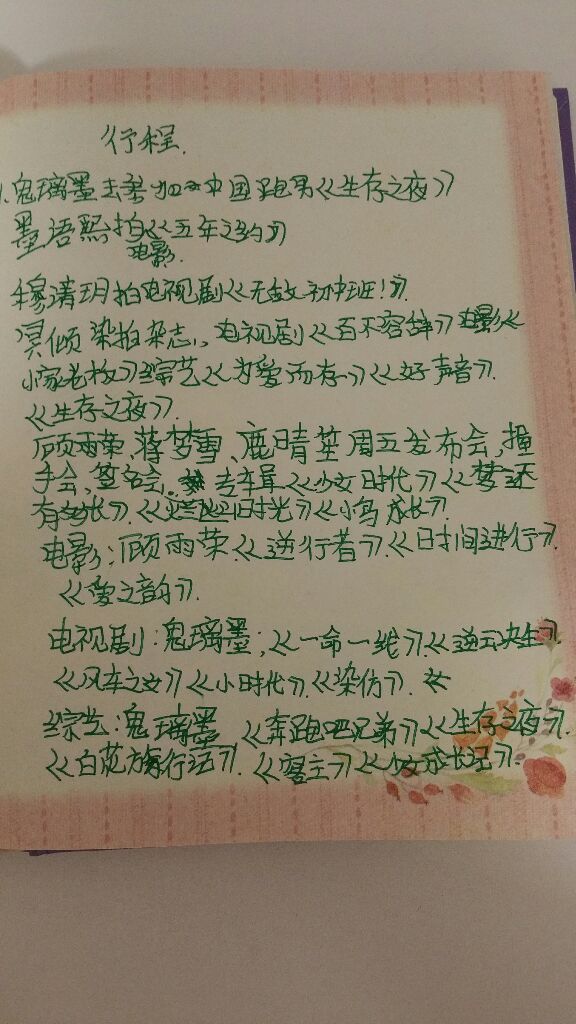 行程.
1.鬼璃墨去参加中国跑男《生存之夜》
墨语熙拍《五年之约》
电影.
穆清玥拍电视剧《无敌初中班!》.
冥倾染拍杂志, 电视剧《百不容辞》电影《
小家老板》综艺《为爱而存》《好声音》.
《生存之夜》.
顾雨荣、蒋梦雪、鹿晴茔周五发布会, 撞
手会、签名会. 专辑《少女时代》《梦还
有多长》.《烂旧时光》《小鸟成长》.
电影: 顾雨荣.《逆行者》.《时间进行》.
《爱之韵》.
电视剧: 鬼璃墨;《一命一线》.《逆云决生》
《风车之女》《小时代》.《染仿》.
综艺: 鬼璃墨《奔跑吧兄弟》《生存之夜》.
《百花旅行话》.《寝主》《少女成长记》.